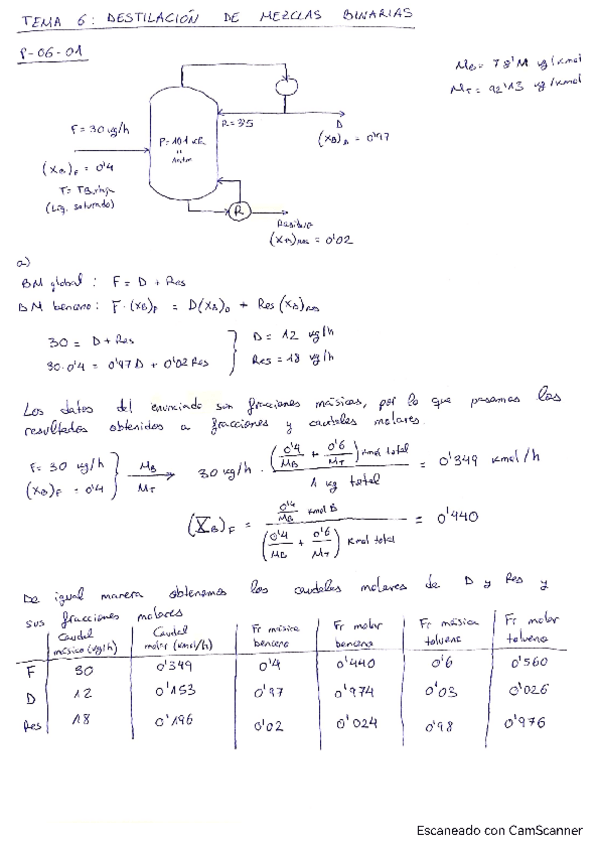 TEMA 6: DESTILACIÓN DE MEZCLAS BINARIAS
P-06-01
MB = 78'11 kg/kmol
MT = 92'13 kg/kmol
F = 30 kg/h
R = 3'5
D
P = 101 kPa
(XB)D = 0'97
1 atm
(XB)F = 0'4
(Líq. saturado)
R
Residuo
(XB)Res = 0'02
a)
BM global: F = D + Res
BM benceno: F·(XB)F = D(XB)D + Res(XB)Res
30 = D + Res
D = 12 kg/h
30·0'4 = 0'97D + 0'02Res
Res = 18 kg/h
Los datos del enunciado son fracciones másicas, por lo que pasamos los
resultados obtenidos a fracciones y caudales molares.
F = 30 kg/h
(XB)F = 0'4
MB
MT
30 kg/h · (0'4/MB + 0'6/MT) kmol total / 1 kg total = 0'349 kmol/h
(XB)F = 0'4/MB kmol B / (0'4/MB + 0'6/MT) kmol total = 0'440
De igual manera obtenemos los caudales molares de D y Res y
sus fracciones molares
Caudal másico (kg/h) Caudal molar (kmol/h) Fr másica benceno Fr molar benceno Fr másica tolueno Fr molar tolueno
F 30 0'349 0'4 0'440 0'6 0'560
D 12 0'153 0'97 0'974 0'03 0'026
Res 18 0'196 0'02 0'024 0'98 0'976
Escaneado con CamScanner